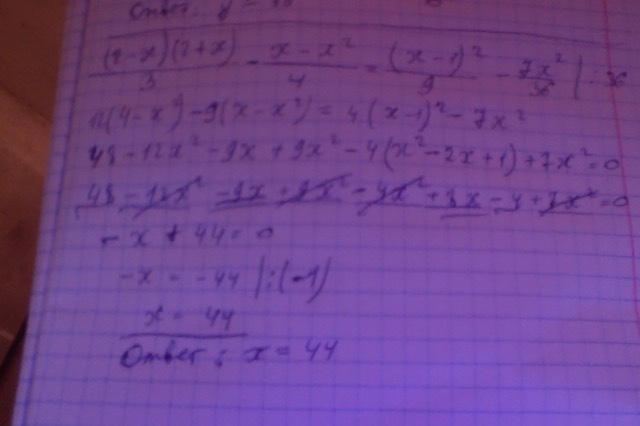 Ответ:
(2-x)(2+x)/3 - x-x²/4 = (x-1)²/9 - 7x²/36 | · 36
12(4-x²) - 9(x-x²) = 4(x-1)² - 7x²
48 - 12x² - 9x + 9x² - 4(x² - 2x + 1) + 7x² = 0
48 - 12x² - 9x + 9x² - 4x² + 8x - 4 + 7x² = 0
- x + 44 = 0
-x = -44 | : (-1)
x = 44
Ответ: x = 44